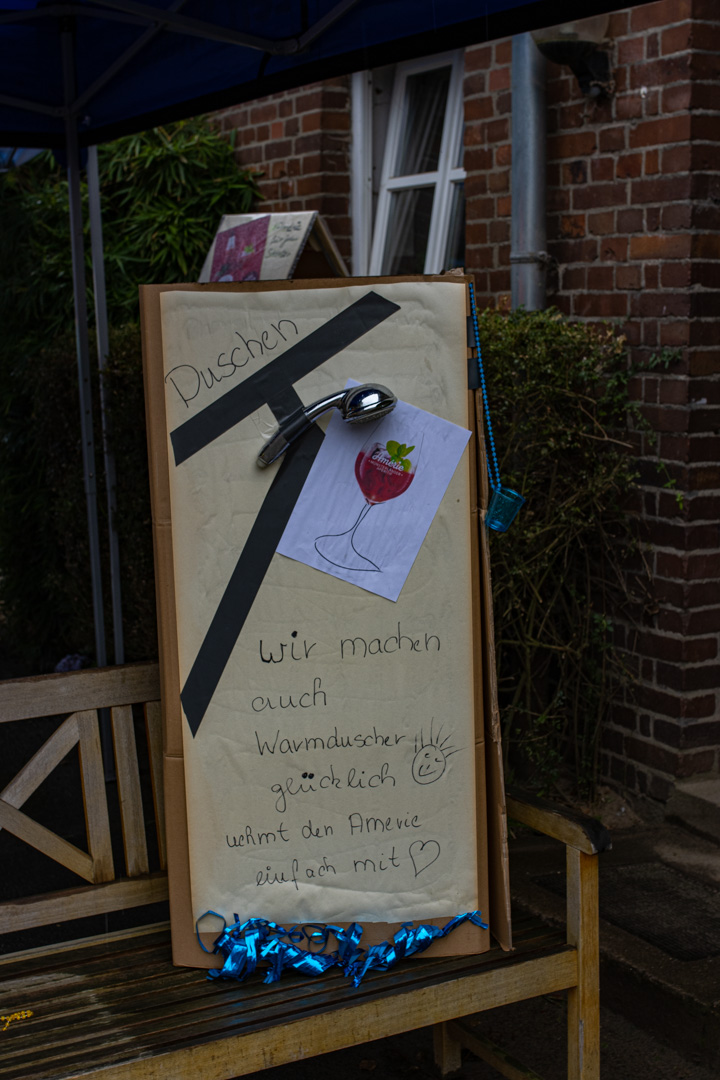 Duschen
Amerie
wir machen
auch
Warmduscher
glücklich
nehmt den Amerie
einfach mit